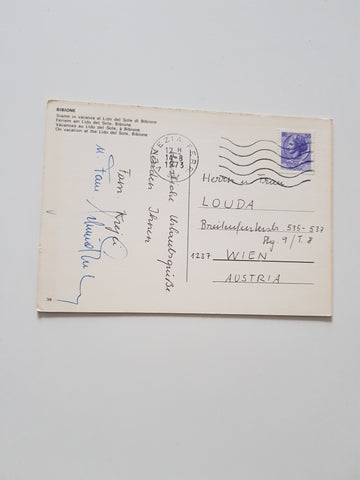 BIBIONE
Siamo in vacanza al Lido del Sole di Bibione
Ferien am Lido del Sole, Bibione
Vacances au Lido del Sole, à Bibione
On vacation at the Lido del Sole, Bibione
VENEZIA FERR.
12 H
1973
Herzliche Urlaubsgrüße
senden Ihnen
Fam
u. Fam
Herrn u. Frau
LOUDA
Breitenfurterstr. 535-537
9/T.8
1237 WIEN
AUSTRIA